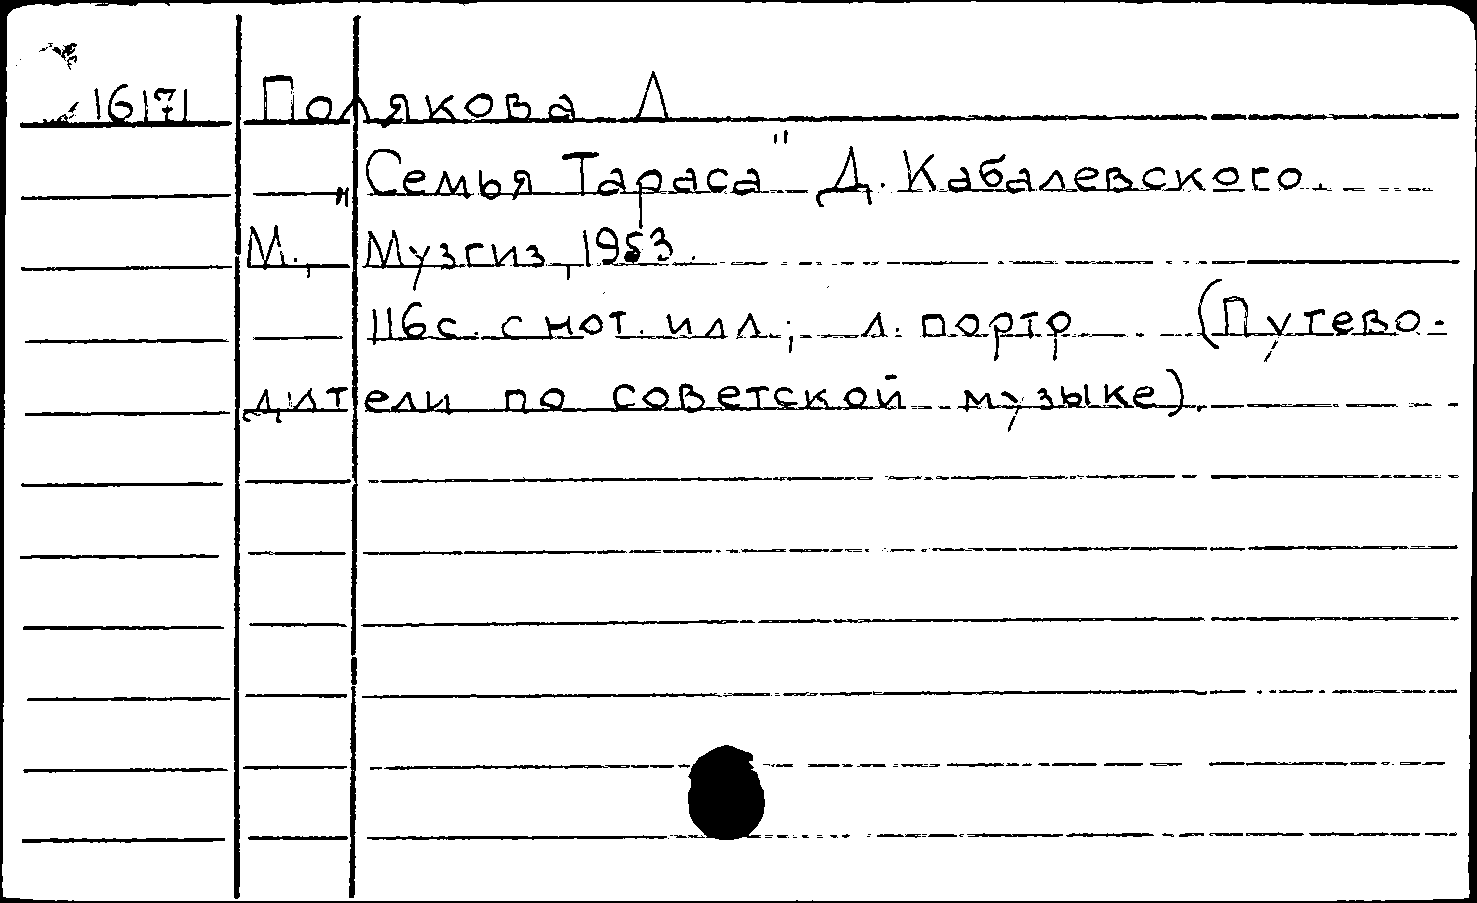 16171 Полякова Л
„Семья Тараса" Д. Кабалевского.
М., Музгиз, 1953.
116с. с нот. илл.; л. портр. (Путево-
дители по советской музыке).